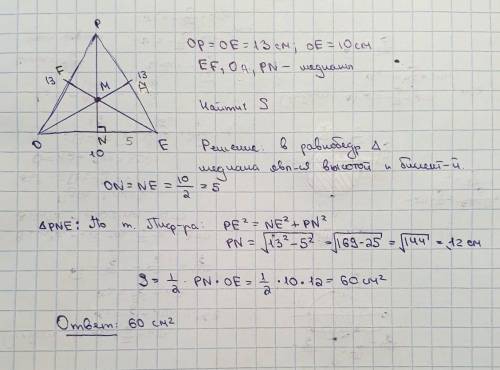 P
F
13
M
13
A
O
N
5
E
10
OP = OE = 13 см, OE = 10 см
EF, OA, PN - медианы
Найти: S
Решение: в равнобедр Δ-
медиана явл-я высотой и биссект-й.
ON = NE = 10/2 = 5
ΔPNE: По т. Пиф-ра: PE² = NE² + PN²
PN = √13² - 5² = √169 - 25 = √144 = 12 см
S = 1/2 · PN · OE = 1/2 · 10 · 12 = 60 см²
Ответ: 60 см²